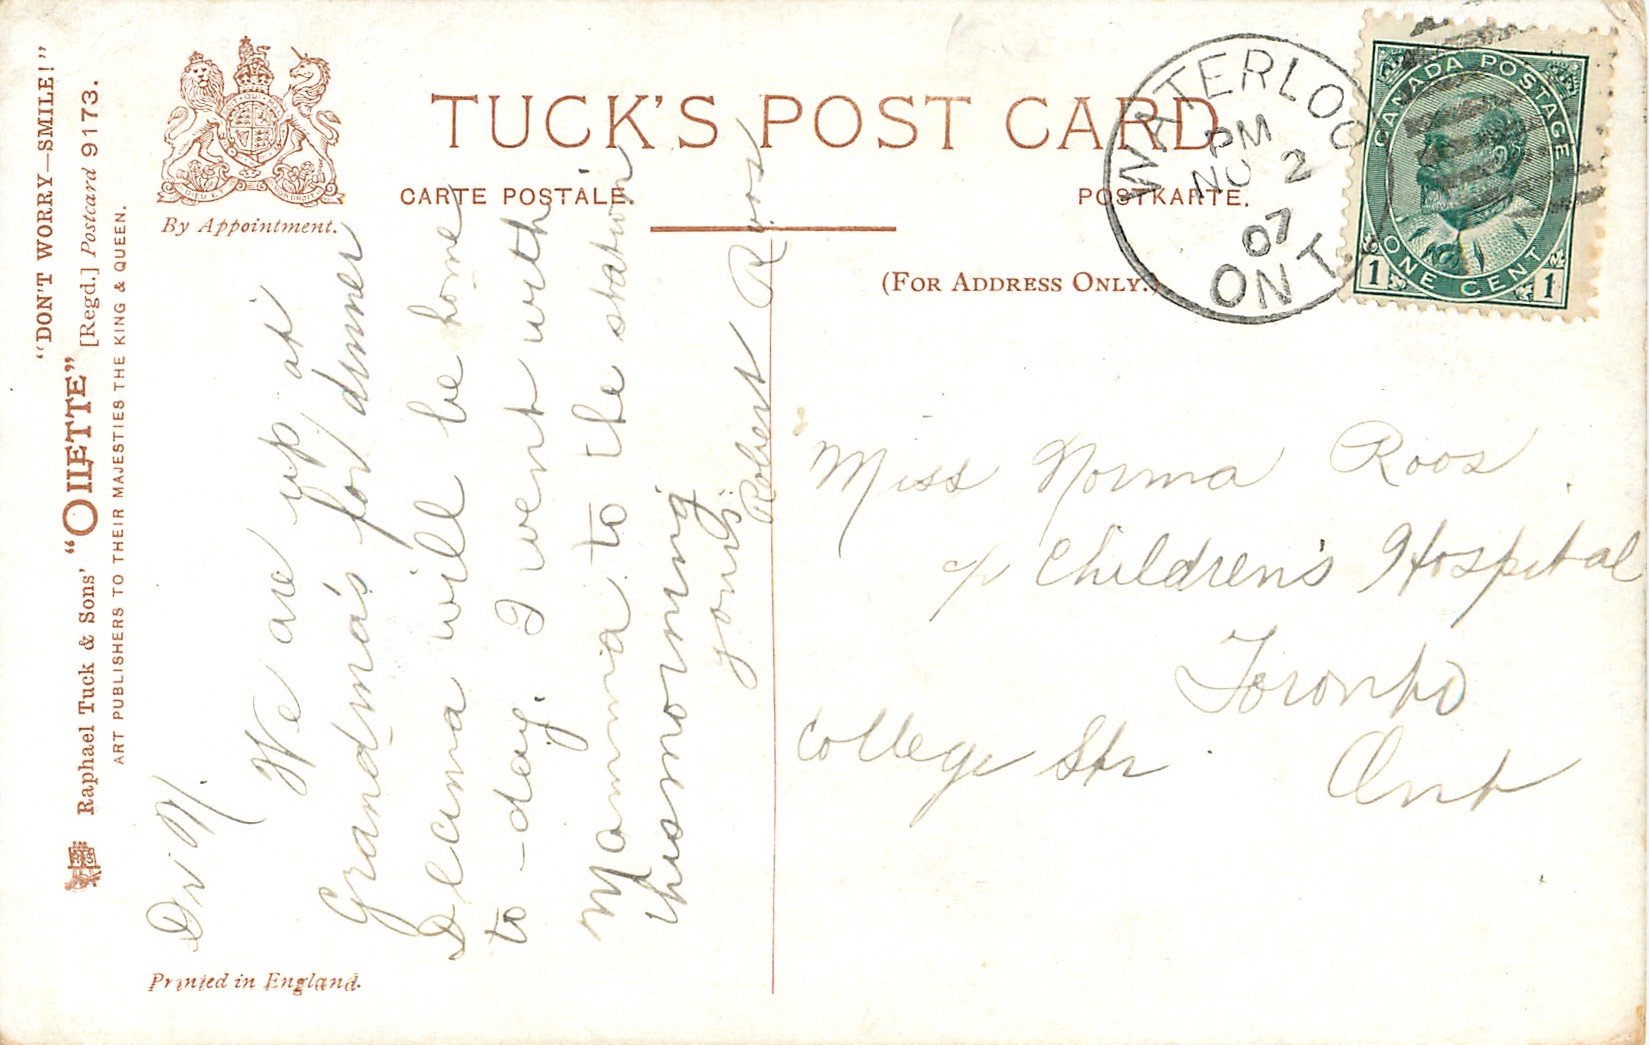 "DON'T WORRY—SMILE!"
Raphael Tuck & Sons' "OILETTE" [Regd.] Postcard 9173.
ART PUBLISHERS TO THEIR MAJESTIES THE KING & QUEEN.
By Appointment.
Printed in England.
TUCK'S POST CARD
CARTE POSTALE
POSTKARTE.
(FOR ADDRESS ONLY.)
WATERLOO
PM
NO 2
07
ONT.
CANADA POSTAGE
1 ONE CENT 1
Dr N.
We are up at
Grandma's for dinner
Deana will be home
to-day. I went with
Mamma to the station
this morning
yours
Robert Roos
Miss Norma Roos
c/o Children's Hospital
Toronto
College Str. Ont